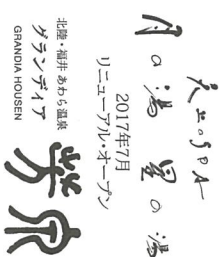 天上のSPA
月の湯 星の湯
2017年7月
リニューアル・オープン
北陸・福井 あわら温泉
グランディア
芳泉
GRANDIA HOUSEN